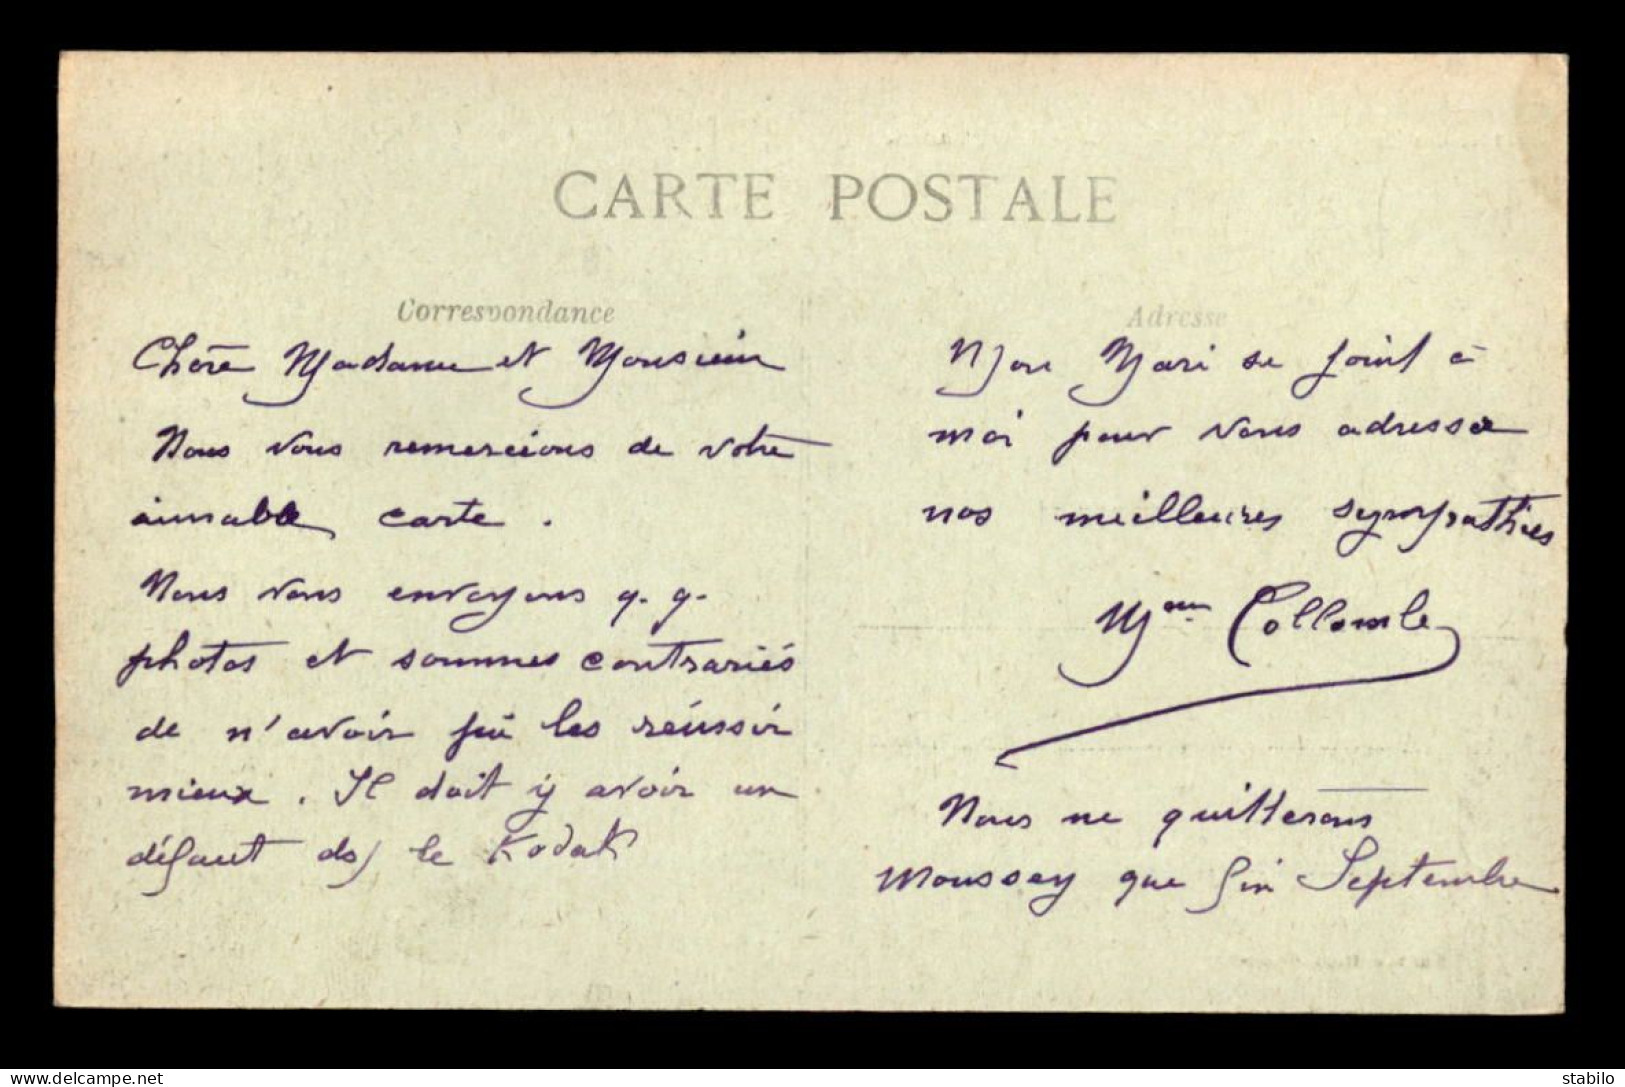 CARTE POSTALE
Correspondance
Chère Madame et Monsieur
Nous vous remercions de votre
aimable carte.
Nous vous envoyons q. q.
photos et sommes contrariés
de n'avoir pû les réussir
mieux. Il doit y avoir un
défaut ds le Kodak
Adresse
Mon Mari se joint à
moi pour vous adresser
nos meilleures sympathies
Mme Collombe
Nous ne quitterons
Moussey que fin Septembre
delcampe.net
stabilo